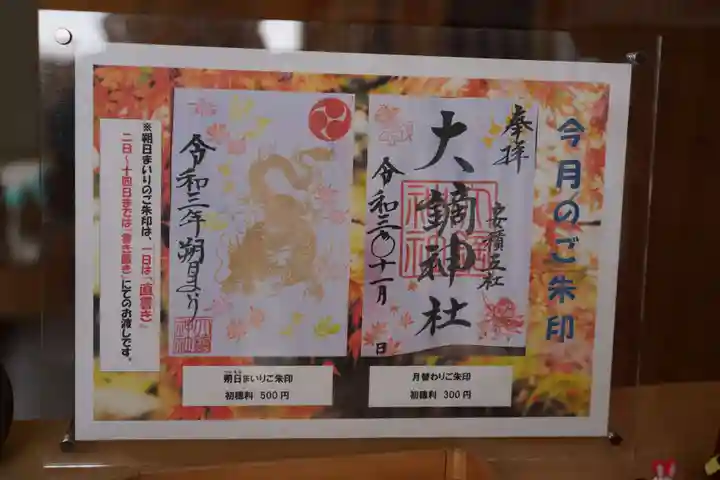 今月のご朱印
奉拝
安積五社
大鏑神社
令和三年十一月
日
令和三年朔日まいり
※朔日まいりのご朱印は、一日は「直書き」
二日~十四日までは「書き置き」にてのお渡しです。
朔日まいりご朱印
初穂料 500円
月替わりご朱印
初穂料 300円